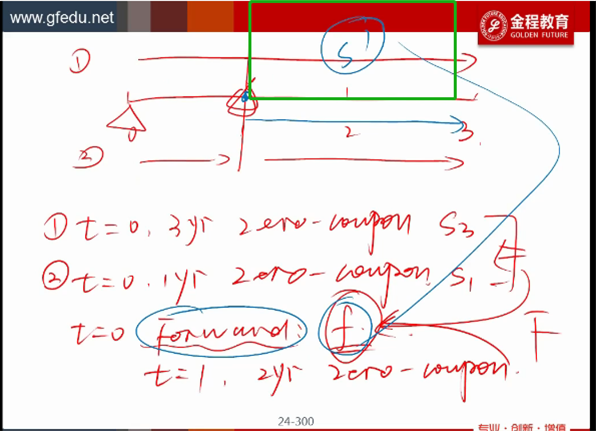 www.gfedu.net
金程教育
GOLDEN FUTURE
① S'
0 1
2 3
②
① t=0, 3yr zero-coupon S3
② t=0, 1yr zero-coupon, S1
t=0 Forward: f
t=1, 2yr zero-coupon.
24-300
专业·创新·增值